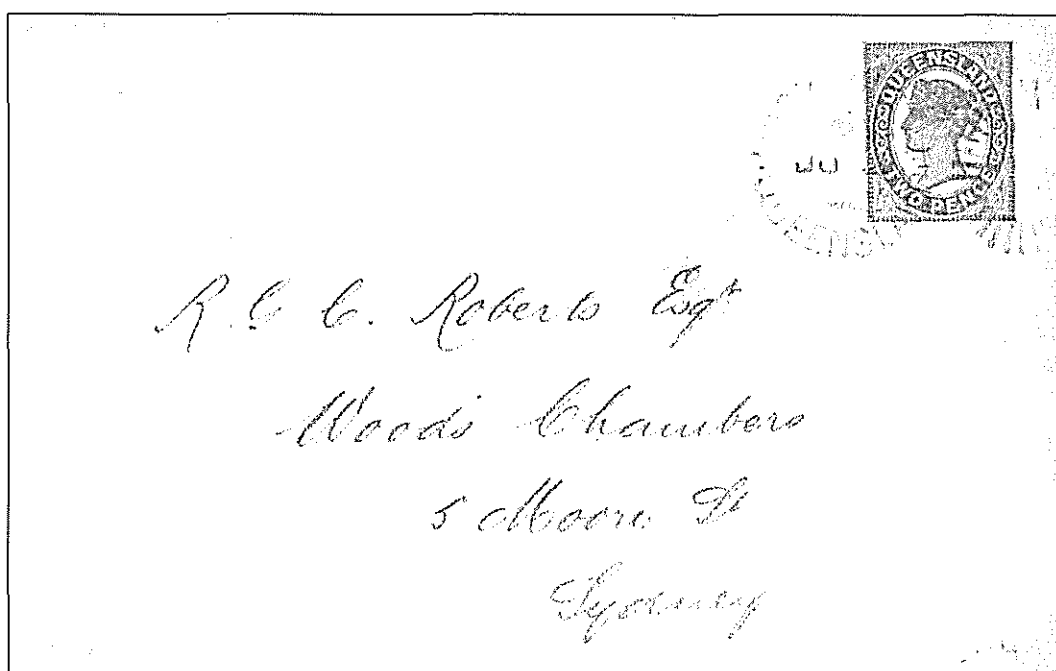 QUEENSLAND
TWO PENCE
R. C. C. Roberts Esqr
Woods Chambers
5 Moore St
Sydney